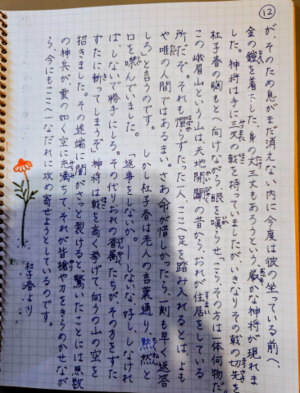 ⑫
が、そのため息がまだ消えない内に今度は彼の坐っている前へ、
金の鎧を着下した、身の丈三丈もあろうという、厳かな神将が現れま
した。神将は手に三叉の戟を持っていましたが、いきなりその戟の切先を
杜子春の胸もとへ向けながら、眼を嗔らせて「その方は一体何物だ
この峨眉山という山は、天地開闢の昔から、おれが住居をしている
所だぞ。それも憚らずたった一人、ここへ足を踏み入れるとは、よも
や唯の人間ではあるまい。さあ命が惜しかったら、一刻も早く返答
しろ」と言うのです。しかし杜子春は老人の言葉通り、黙然と
口を噤んでいました。「返事をしないか。――しないな。好し。しなけれ
ば、しないで勝手にしろ。その代りおれの眷属たちが、その方をずた
ずたに斬ってしまうぞ」神将は戟を高く挙げて、向うの山の空を
招きました。その途端に闇がさっと裂けると、驚いたことには無数
の神兵が、雲の如く空に充満ちて、それが皆槍や刀をきらめかせなが
ら、今にもここへ一なだれに攻め寄せようとしているのです。
杜子春より